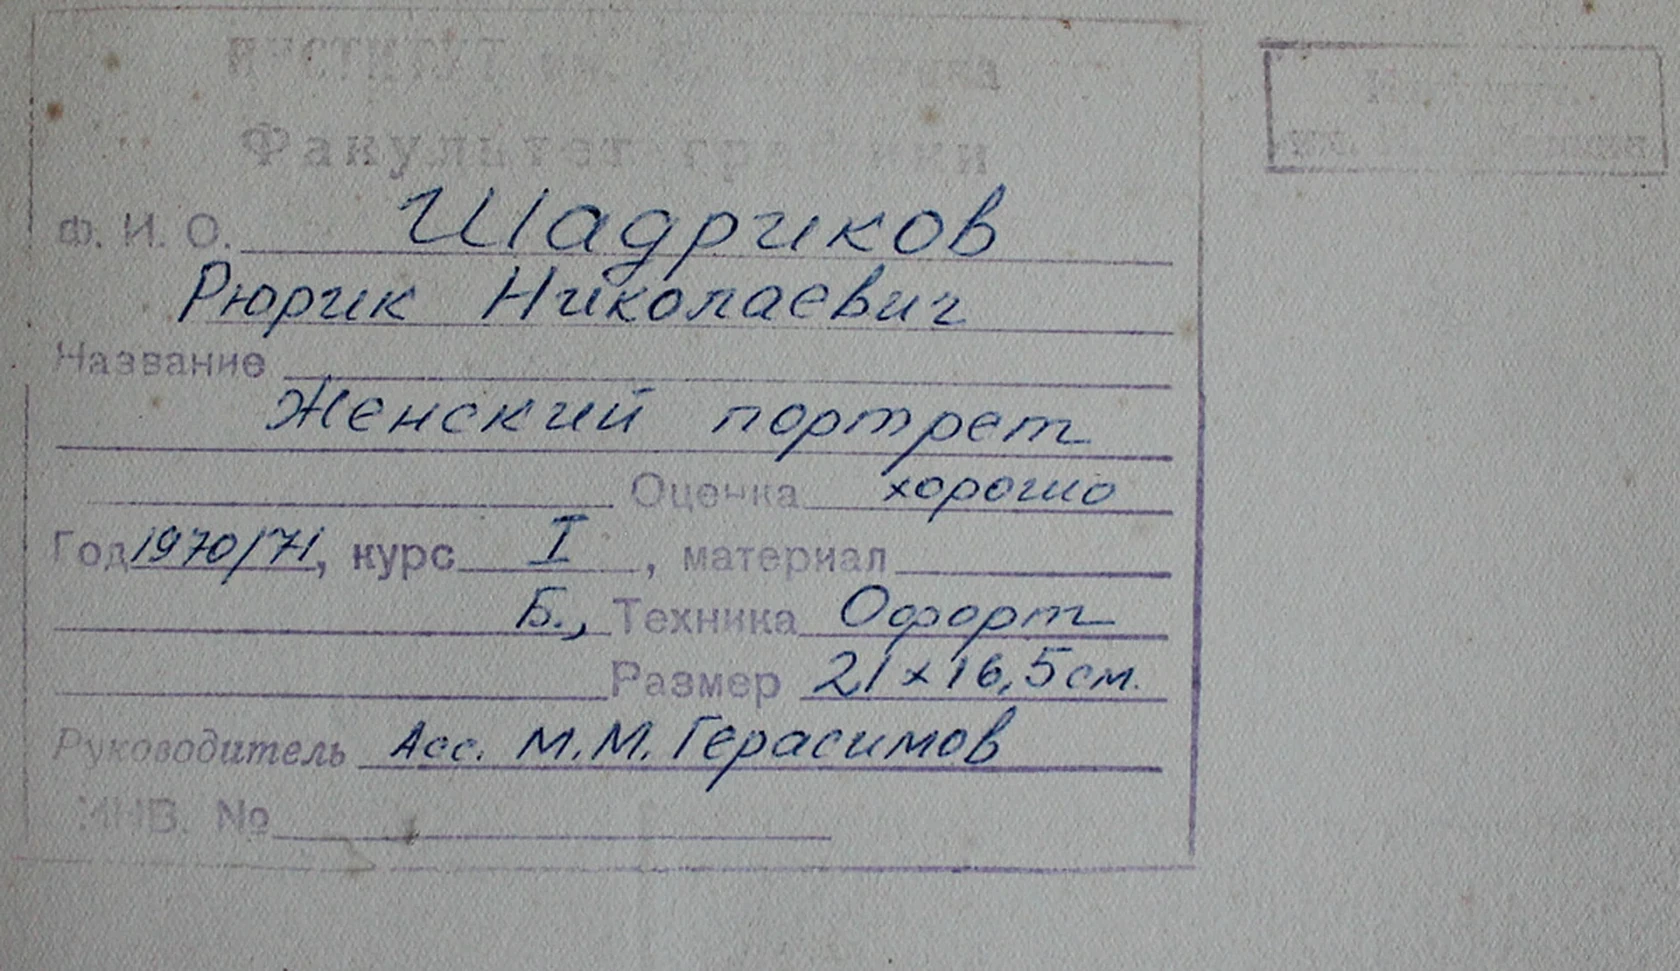 ИНСТИТУТ им.
Факультет графики
Ф. И. О. Шадриков
Рюрик Николаевич
Название
Женский портрет
Оценка хорошо
Год 1970/71, курс I, материал
Б., Техника Офорт
Размер 21x16,5 см.
Руководитель Асс. М.М. Герасимов
ИНВ. №